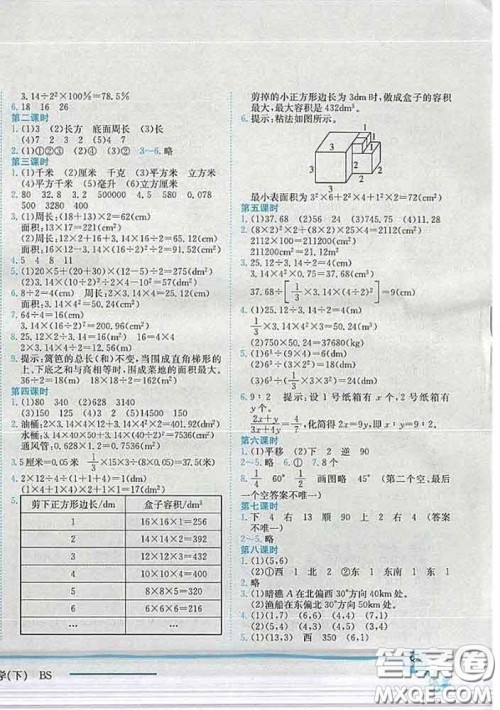 3.14÷2²×100%=78.5%
6. 18 16 26
第二课时
1. (1)3 (2)长方 底面周长 (3)长
2. (1)①②③ (2)④ (3)② 3~6. 略
第三课时
1. (1)千米 (2)厘米 千克 (3)立方米
(4)平方千米 (5)毫升 (6)立方厘米
2. 80 32.8 3.2 500000 4.5 580 0.078
500 380 4500
3. (1)周长:(13+18)×2=62(cm)
面积:13×17=221(cm²)
(2)周长:12×2+16+3.14×16÷2=65.12(cm)
面积:16×12-3.14×(16÷2)²÷2=91.52(cm²)
4. 5 4 8 11
5. (1)(20×5+(20+30)×(12-5)÷2=275(cm²)
(2)10×(10÷2)-3.14×(10÷2)²÷2=10.75(cm²)
6. 8÷2=4(cm) 周长:3.14×4×2=25.12(cm)
7. 64÷4=16(cm)
3.14×(16÷2)²=200.96(cm²)
8. 25.12÷3.14÷2=4(cm)
4×2×4-3.14×4²÷2=6.88(cm²)
9. 提示:篱笆的总长(和)不变,当围成直角梯形的
上、下底之和与高相等时,围成菜地的面积最大。
36÷2=18(m) 18×18÷2=162(m²)
第四课时
1. (1)80 340 (2)6800 4 50
(3)150 125 (4)3 2 (5)2 3140
2. 油桶:2×3.14×4²+2×3.14×4×12=401.92(dm²)
水桶:3.14×(40÷2)²+3.14×40×50=7536(cm²)
通风管:0.628×1.2=0.7536(m²)
3. 5厘米=0.05米 1/3×15×7.5×0.05=37.5(米)
4. 2×12-(1+2+4)×2=10(dm)
(1×4+1×2+2×4)×2=28(dm²)
5.
剪下正方形边长/dm 盒子容积/dm³
1 16×16×1=256
2 14×14×2=392
3 12×12×3=432
4 10×10×4=400
5 8×8×5=320
6 6×6×6=216
… …
剪掉的小正方形边长为3dm时,做成盒子的容积
最大,最大容积是432dm³。
6. 提示:粘法如图所示。
1
1
2
2
3
3
3
最小表面积为3²×6+2²×4+1²×2=72(cm²)
第五课时
1. (1)37.68 (2)56 (3)745.75 (4)11.28
2. (8×2)²×2+(8×2)×25×4=2112(cm²)
2112×100=211200(cm²)
211200cm²=21.12m²
3. 25.12÷3.14÷2=4(dm)
1/3×3.14×4²×0.75=12.56(dm³)
3. 25.12÷3.14÷2=4(cm)
1/3×3.14×(4÷2)²×9=37.68(cm³)
37.68÷[1/3×3.14×(4÷2)²]=9(cm)
5. 6³÷(1/3×6²)=18(cm)
6. 9∶2 提示:设1号纸箱有x个,2号纸箱有
y个。
(2x+y)/(3x+4y)=4/7,化简得2x=9y,即x∶y=9∶2。
第六课时
1. (1)平移 (2)下 右 2 逆 90
2~5. 略 6. ① 7. 8个
8. 1/4 60° 1/3 画图略 45° (第二个空、最后
一个空答案不唯一)
第七课时
1. 下 4 右 13 顺 90 上 2 右 (答案
不唯一)
第八课时
1. (1)(5,6)
(2)①西 1 北 2 ②下 1 东 东南 1 东 1
2. 略
3. (1)暗礁A在北偏西30°方向40km处
(2)渔船在东偏北30°方向50km处
4. (1)(4,4) (7,6)
5. (1)(13,13) 西 350 (2)略
学(下) BS
答案卷
MXQE.COM